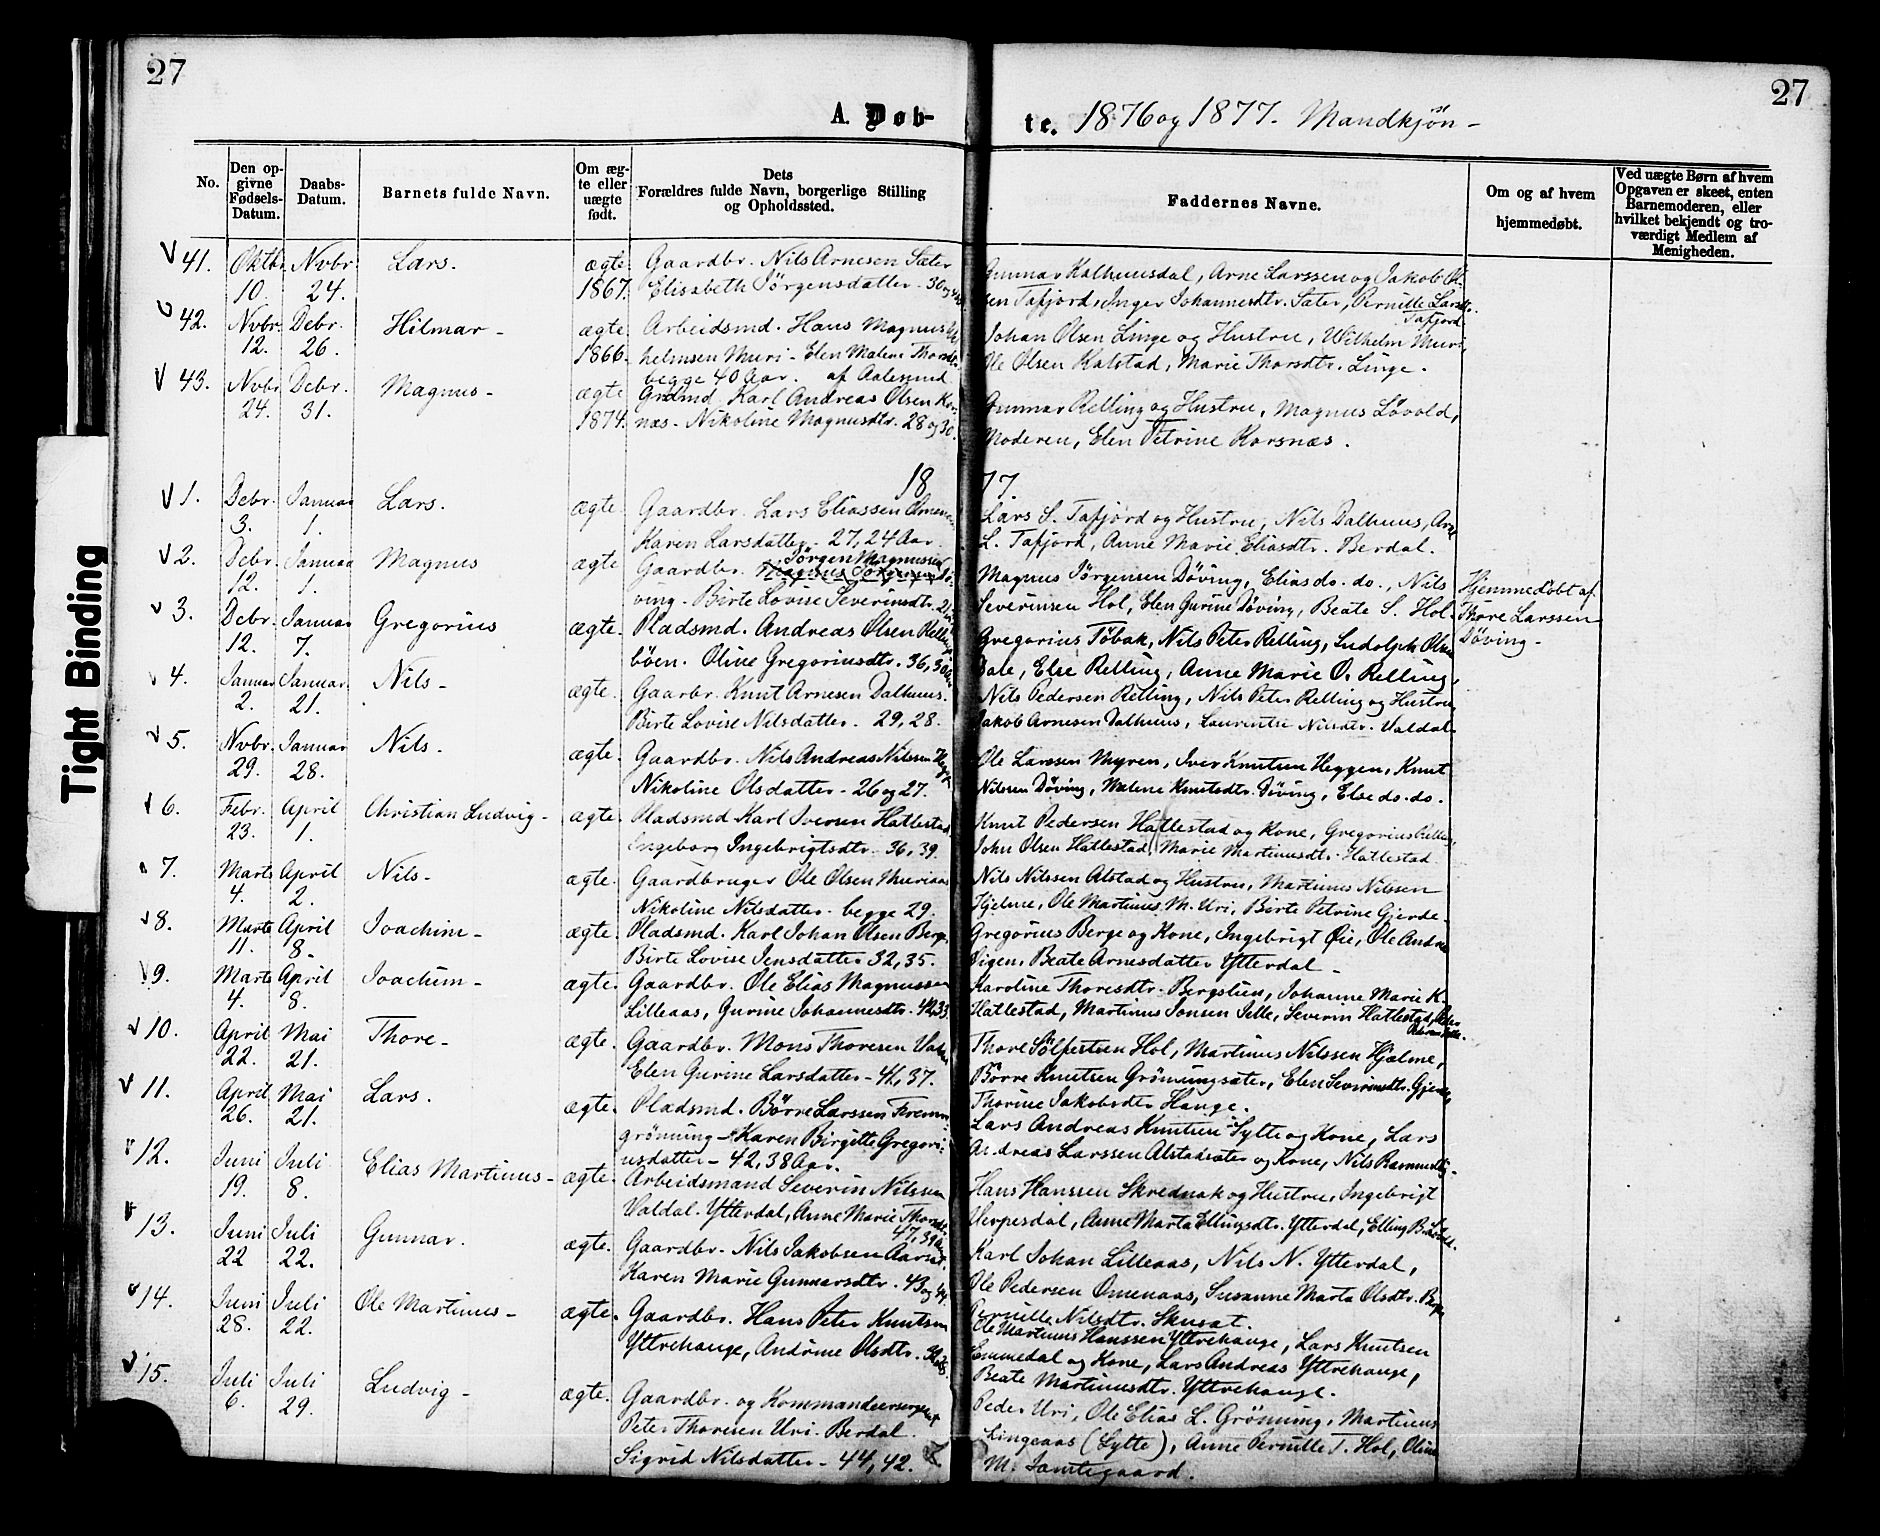 27
27
A. Døb-
te. 1876 og 1877. Mandkjøn-
No.
Den opgivne Fødsels-Datum.
Daabs-Datum.
Barnets fulde Navn.
Om ægte eller uægte født.
Dets Forældres fulde Navn, borgerlige Stilling og Opholdssted.
Faddernes Navne.
Om og af hvem hjemmedøbt.
Ved uægte Børn af hvem Opgaven er skeet, enten Barnemoderen, eller hvilket bekjendt og troværdigt Medlem af Menigheden.
41. Oktbr. 10. Nvbr. 24. Lars. ægte 1867. Gaardbr. Nils Arnesen Sæter
Elisabeth Jørgensdatter. 30 og
Gunnar Kalhusdal, Arne Larssen og Jakob
Tafjord, Inger Johannesdtr. Sæter, Pernille Larsdtr. Tafjord
42. Nvbr. 12. Debr. 26. Hilmar- ægte 1866. Arbeidsmd. Hans Magnus
helmsen Muri- Elen Malene
begge 40 Aar. af Aalesund
Johan Olsen Linge og Hustru, Wilhelm Muri,
Ole Olsen Kalstad, Marie Thorsdtr. Linge.
43. Nvbr. 24. Debr. 31. Magnus- ægte 1874. Grdmd. Karl Andreas Olsen Kors
næs- Nikoline Magnusdtr. 28 og 30.
Gunnar Relling og Hustru, Magnus Løvold,
Moderen, Elen Petrine Korsnæs.
18 77.
1. Debr. 3. Januar 1. Lars. ægte. Gaardbr. Lars Eliassen
Karen Larsdatter- 27, 24 Aar.
Lars S. Tafjord og Hustru, Nils Dalhuus, Arne
L. Tafjord, Anne Marie Eliasdtr. Berdal.
2. Debr. 12. Januar 1. Magnus ægte Gaardbr. Jørgen Magnussen Dø-
ving- Birte Lovise Severinsdtr.
Magnus Jørgensen Døving, Elias do. do., Nils
Severinsen Hol, Elen Gurine Døving, Beate S. Hol.
Hjemmedøbt af
Thore Larssen
Døving-
3. Debr. 12. Januar 7. Gregorius ægte. Pladsmd. Andreas Olsen
bøen. Oline Gregoriusdtr. 36, 30
Gregorius Tøbak, Nils Peter Relling, Ludolph Olsen
Dale, Else Relling, Anne Marie O. Relling,
4. Januar 2. Januar 21. Nils- ægte. Gaarbr. Knut Arnesen Dalhuus.
Birte Lovise Nilsdatter. 29, 28.
Nils Pedersen Relling, Nils Peter Relling og Hustru
Jakob Arnesen Dalhuus, Laurentse Nilsdtr. Valdal
5. Nvbr. 29. Januar 28. Nils. ægte. Gaardbr. Nils Andreas Nilssen
Nikoline Olsdatter- 26 og 27.
Ole Larssen Myren, Iver Knutsen Heggen, Knut
Nilssen Døving, Malene Knutsdtr. Døving, Else do. do.
6. Febr. 23. April 1. Christian Ludvig- ægte. Pladsmd Karl Iversen Hatlestad
Ingeborg Ingebrigtsdtr. 36, 39.
Knut Pedersen Hatlestad og Kone, Gregorius Relling
John Olsen Hatlestad, Marie Martinusdtr. Hatlestad
7. Marts 4. April 2. Nils- ægte. Gaardbruger Ole Olsen Muriaas
Nikoline Nilsdatter- begge 29.
Nils Nilssen Alstad og Hustru, Martinus Nilssen
Hjelme, Ole Martinus M. Uri, Birte Petrine Gjerde-
8. Marts 11. April 8. Joachim- ægte. Pladsmd. Karl Johan Olsen Berge
Birte Lovise Jensdatter 32, 35.
Gregorius Berge og Kone, Ingebrigt Øie, Ole Andr
Vigen, Beate Arnesdatter Ytterdal-
9. Marts 4. April 8. Joachim- ægte. Gaardbr. Ole Elias Magnussen
Lilleaas, Gurine Johannesdtr. 42, 33.
Karoline Thoresdtr. Bergstien, Johanne Marie K.
Hatlestad, Martinus Jonsen Jelle, Severin Hatlestad,
10. April 22. Mai 21. Thore- ægte. Gaardbr. Mons Thoresen
Elen Gurine Larsdatter- 41, 37.
Thore Sølfestsen Hol, Martinus Nilssen Hjelme,
Børre Knutsen Grønningsæter, Elen Severinsdtr. Gjerde
Thorine Jakobsdtr Hauge.
11. April 26. Mai 21. Lars. ægte. Pladsmd. Børre Larssen
grønning- Karen Birgitte Gregori-
usdatter- 42, 38 Aar.
Lars Andreas Knutsen Sylte og Kone, Lars
Andreas Larssen Alstadsæter og Kone, Nils
12. Juni 19. Juli 8. Elias Martinus- ægte. Arbeidsmand Severin Nilssen
Valdal. Ytterdal, Anne Marie Thorsdtr. 47, 39
Hans Hanssen Skrednak og Hustru, Ingebrigt
Herpesdal, Anne Marta Ellingsdtr. Ytterdal, Elling B.
13. Juni 22 Juli 22. Gunnar. ægte. Gaardbr- Nils Jakobsen
Karen Marie Gunnarsdtr. 43 og 44.
Karl Johan Lilleaas, Nils N. Ytterdal,
Ole Pedersen Omenaas, Susanne Marta Olsdtr.
Pernille Nilsdtr.
14. Juni 28. Juli 22. Ole Martinus- ægte. Gaardbr. Hans Peter Knutsen
Yttrehauge, Andrine Olsdtr.
Ole Martinus Hanssen Yttrehauge, Lars Knutsen
og Kone, Lars Andreas Yttrehauge,
Beate Martinusdtr. Yttrehauge.
15. Juli 6. Juli 29. Ludvig- ægte. Gaardbr. og Kommandeersergent
Peter Thoresen Uri. Berdal.
Sigrid Nilsdatter- 44, 42.
Peder Uri, Ole Elias L. Grønning, Martinus
Lingeaas (Sylte), Anne Pernille T. Hol, Oline
M. Jamtegaard.
Tight Binding